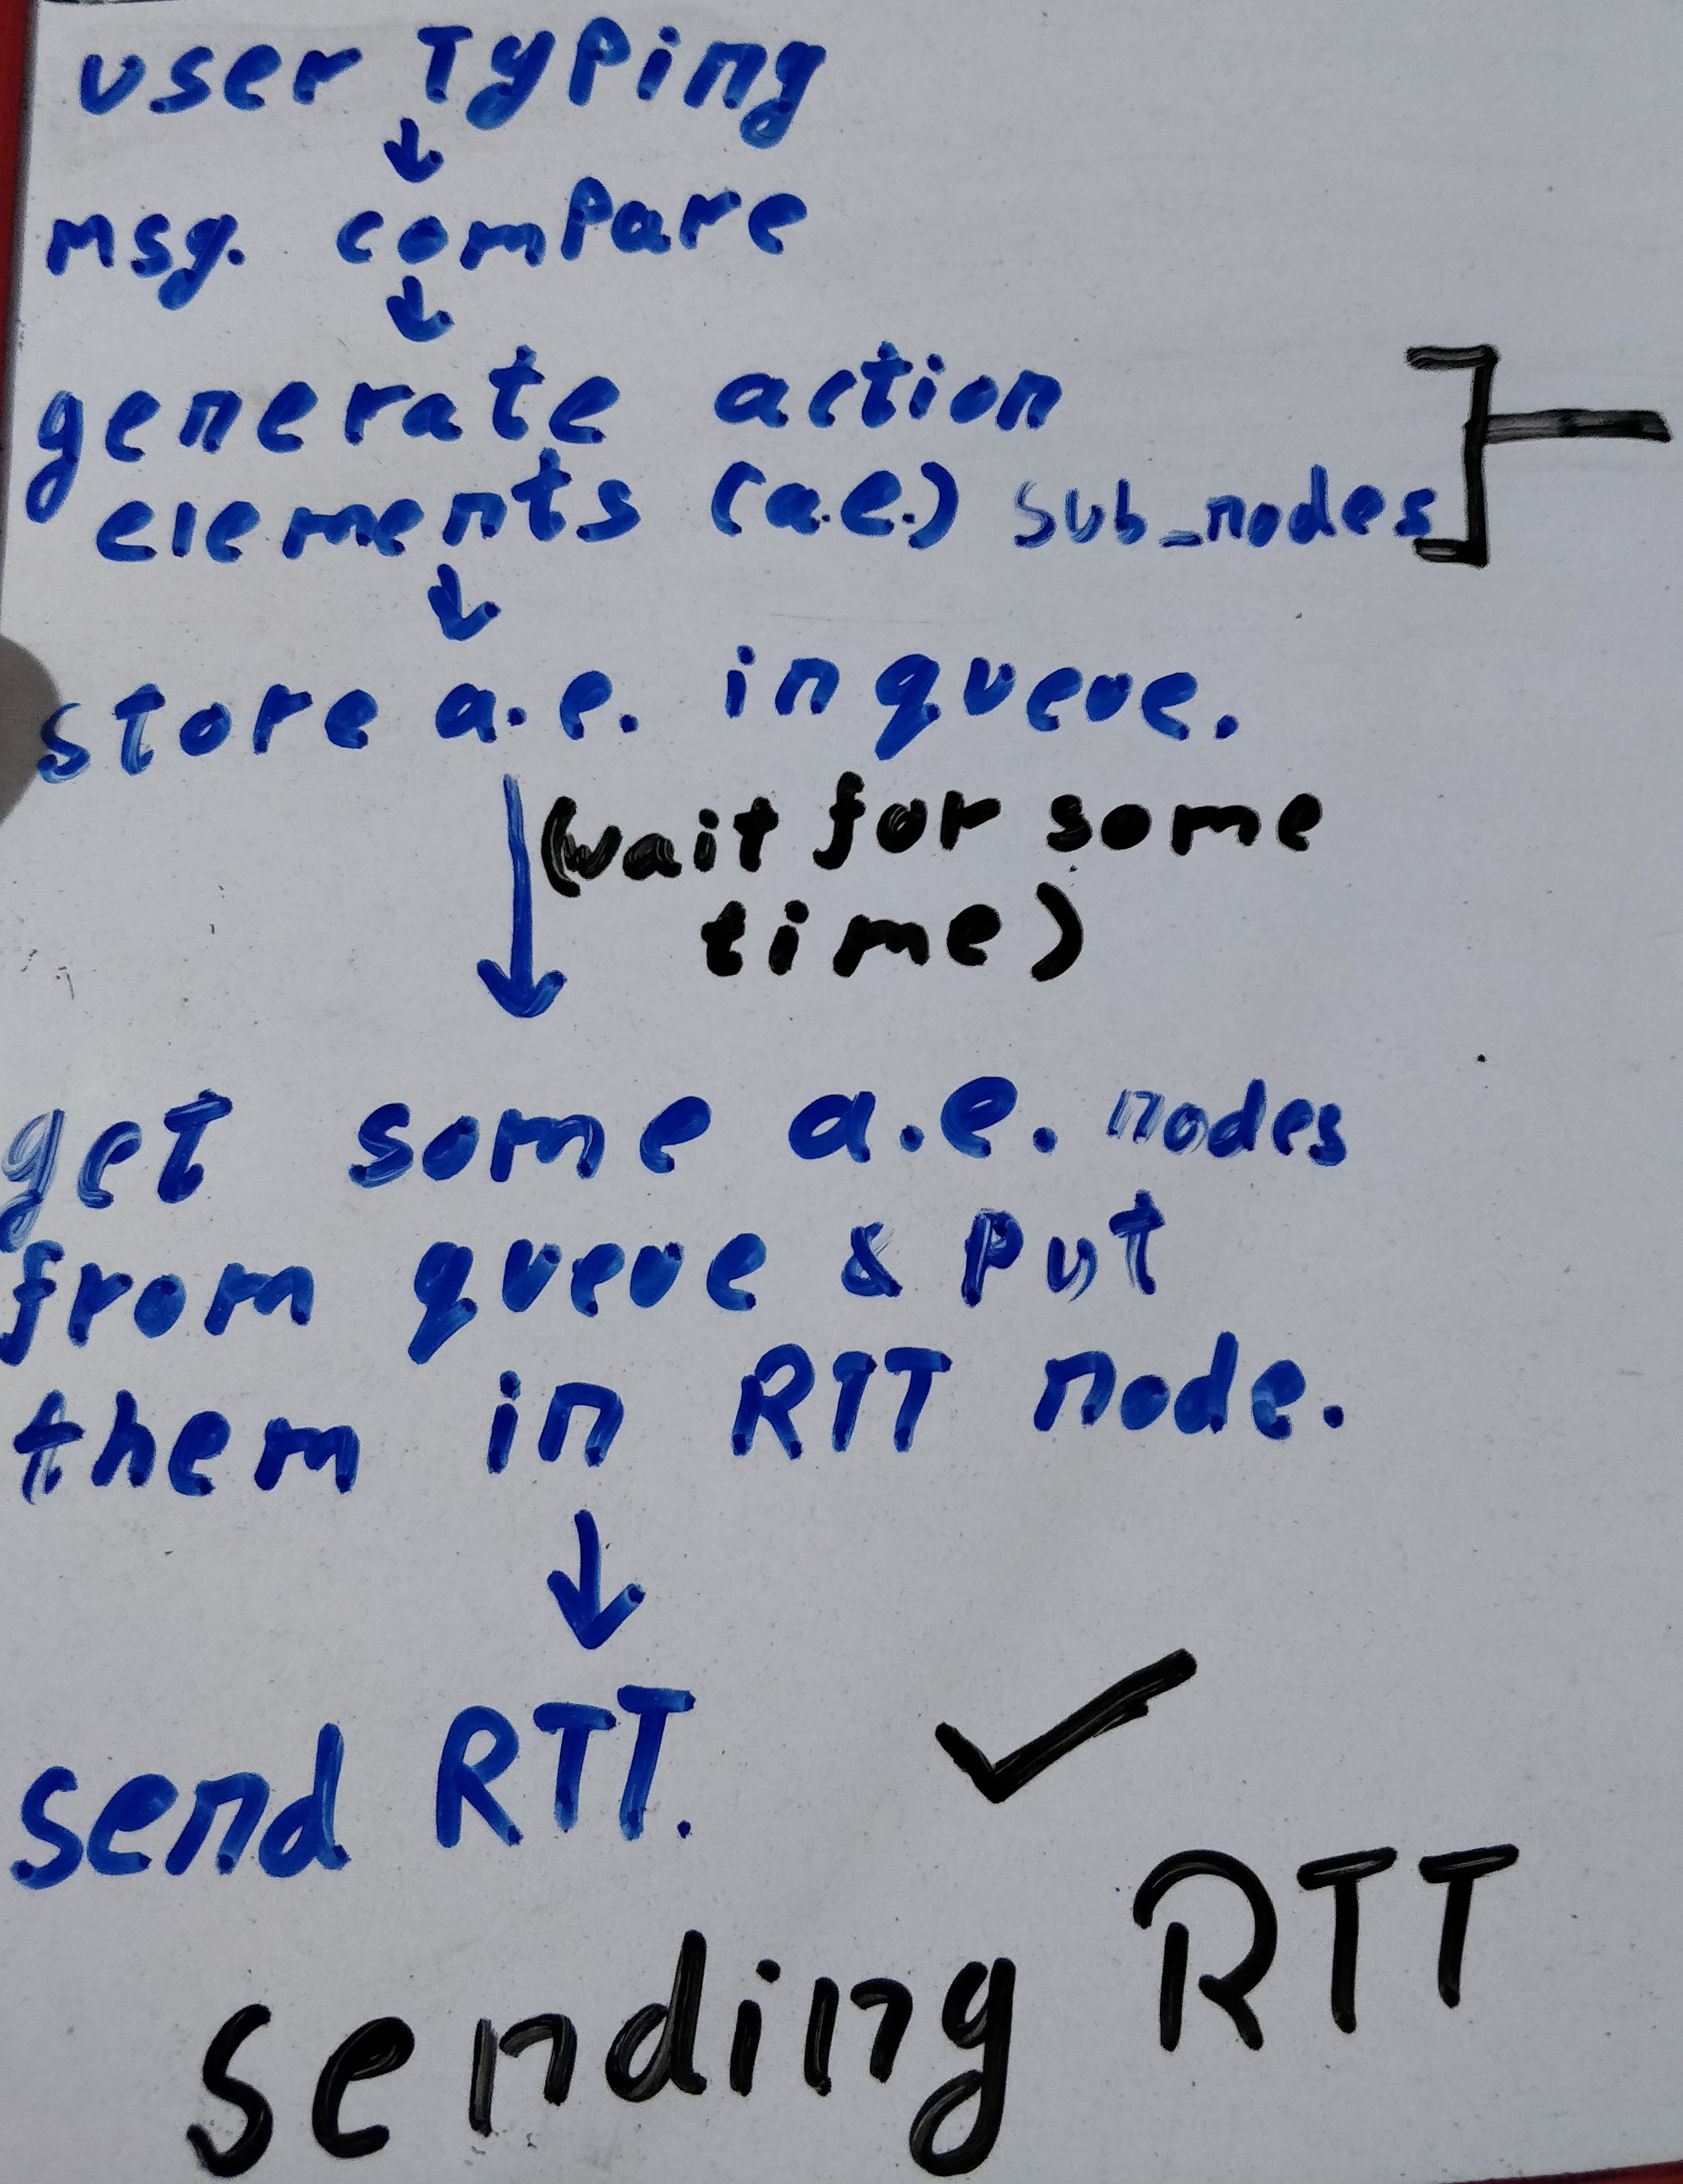 user Typing
↓
msg. compare
↓
generate action
elements (a.e.) sub_nodes
↓
store a.e. in queue.
↓ (wait for some
time)
get some a.e. nodes
from queue & put
them in RTT node.
↓
send RTT. ✓
sending RTT